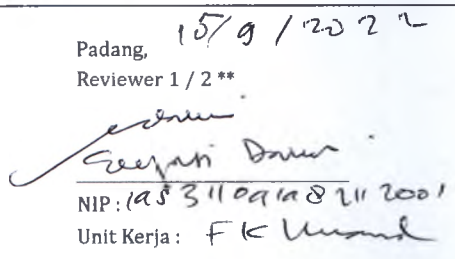 Padang, 15/9/2022
Reviewer 1 / 2 **
NIP : 195311091982112001
Unit Kerja : FK Unand